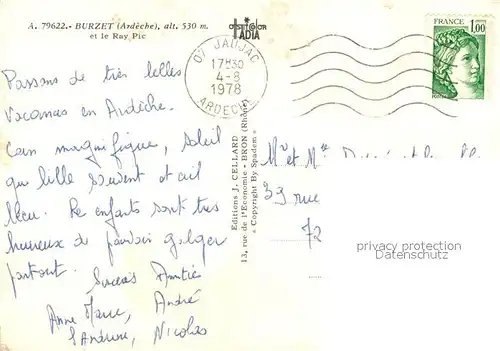 A. 79622.- BURZET (Ardèche), alt. 530 m.
et le Ray Pic
OFFSET COLOR
IADIA
07 JAUJAC
17H30
4-8
1978
ARDECHE
FRANCE
1,00
Passons de très belles
vacances en Ardèche.
Coin magnifique, soleil
qui brille souvent et ciel
bleu. Les enfants sont très
heureux de pouvoir galoper
partout.
Sincères Amitiés
Anne Marie, André
Sandrine, Nicolas
Editions J. CELLARD
13, rue de l'Economie - BRON (Rhône)
« Copyright By Spadem »
Mr et Mme
39 rue
72
privacy protection
Datenschutz